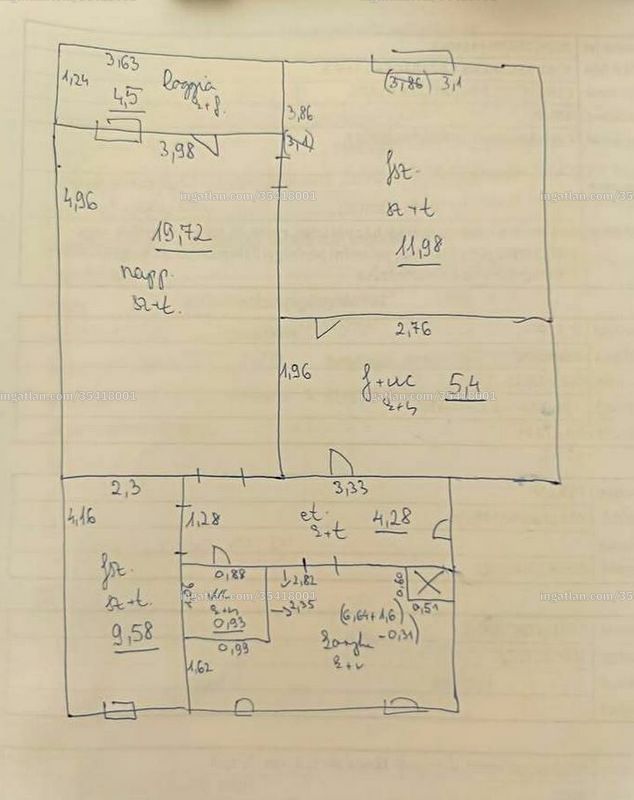 3,63
1,24
loggia
4,5
3,98
3,86
(3,1)
(3,86) 3,1
fsz.
sz+t
11,98
ingatlan.com/35418001
ingatlan.com/35418001
4,96
19,72
napp.
sz+t.
2,76
1,96
f+wc
5,4
ingatlan.com/35418001
ingatlan.com/35418001
2,3
3,33
4,16
1,28
et.
4,28
fsz.
sz+t.
9,58
0,88
2,82
2,35
0,93
0,93
0,51
(6,64+1,6)
-0,31)
1,62
ingatlan.com/35418001
ingatlan.com/35418001